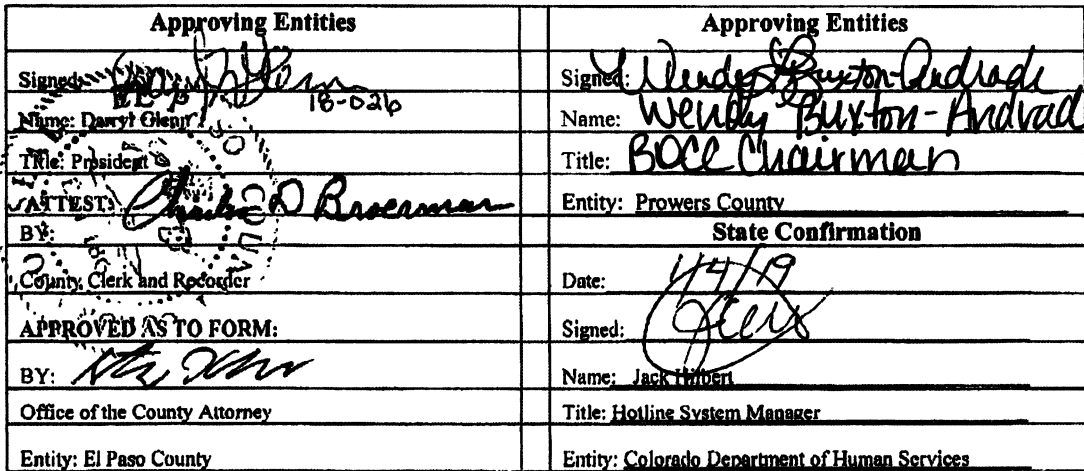 Approving Entities
Signed:
18-026
Name: Darryl Glenn
Title: President
ATTEST: Charles D Broerman
BY:
County Clerk and Recorder
APPROVED AS TO FORM:
BY:
Office of the County Attorney
Entity: El Paso County
Approving Entities
Signed: Wendy Buxton-Andrade
Name: Wendy Buxton-Andrad
Title: BOCC Chairman
Entity: Prowers County
State Confirmation
Date: 1/4/19
Signed:
Name: Jack Hilbert
Title: Hotline System Manager
Entity: Colorado Department of Human Services